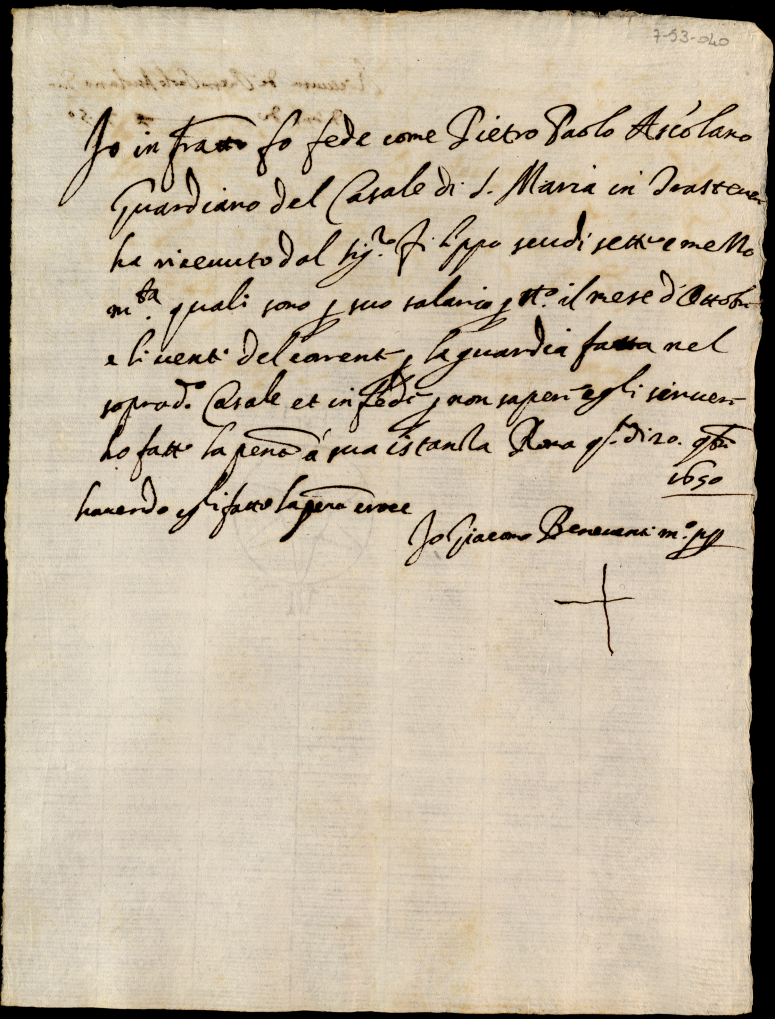 7-53-040
Io infratto fo fede come Pietro Paolo Ascolano
Guardiano del Casale di S. Maria in Trasteuer
ha riceuuto dal sig.re Filippo scudi sette e mezzo
m.ta quali sono p suo salario p tt.o il mese d'Ottobr
e li uenti del corent p la guardia fatta nel
soprad.o Casale et in fede p non saper egli scriuer
ho fatto la pnte á sua istanza Roma q. di 20. 9bre
1650
hauendo egli fatto la pnte croce
Io Giacomo Beneuenti m.o pp